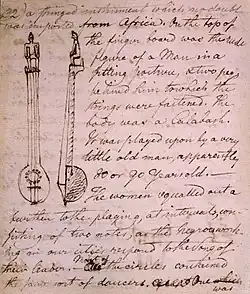 22/ a stringed instrument which no doubt
was imported from Africa. On the top of
the finger board was the rude
figure of a Man in a
sitting posture, & two pegs
behind him to which the
strings were fastened. The
body was a Calabash.
It was played upon by a very
little old man, apparently
80 or 90 Years old. —
The women squalled out a
burthen to the playing, at intervals, con-
sisting of two notes, as the negroes work-
ing in our cities respond to the Song of
their leader. — Most of the circles contained
the same sort of dancers. One
was